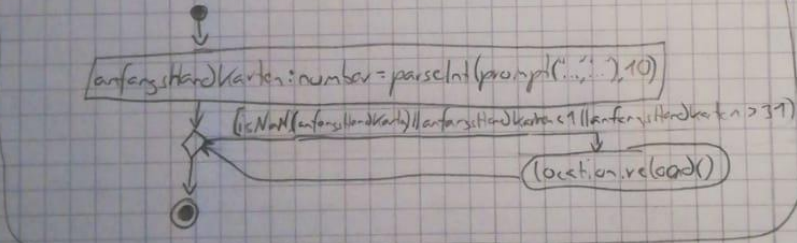 anfangsHandKarten: number = parseInt(prompt("...", "..."), 10)
[isNaN(anfangsHandKarten) || anfangsHandKarten < 1 || anfangsHandKarten > 31]
location.reload()